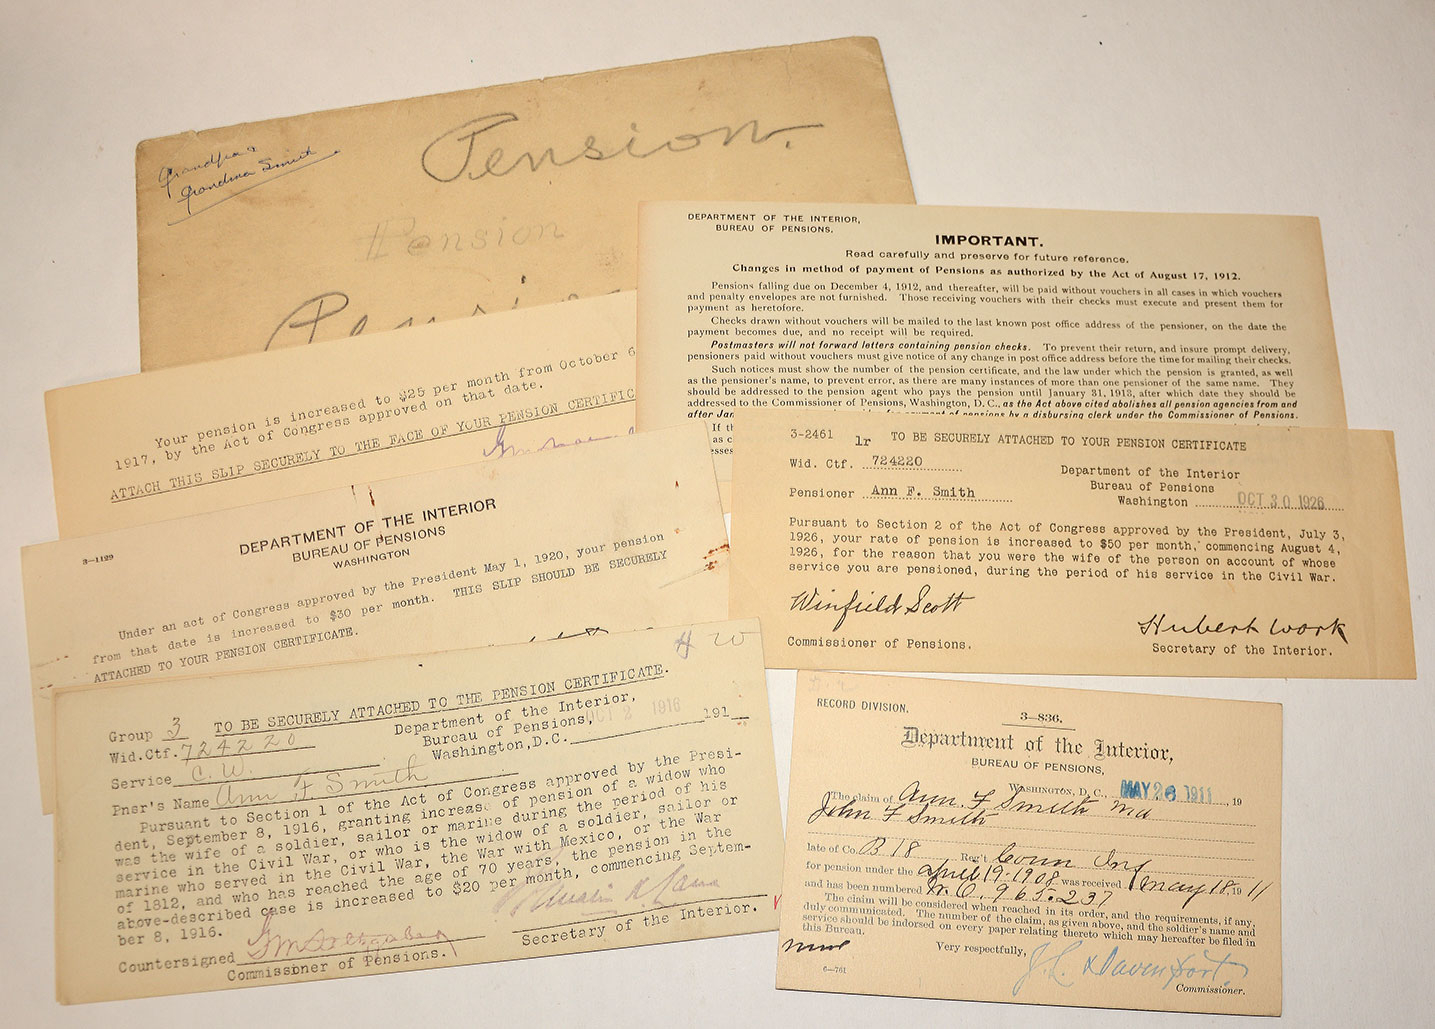 Grandpa &
Grandma Smith
Pension.
Pension
DEPARTMENT OF THE INTERIOR,
BUREAU OF PENSIONS.
IMPORTANT.
Read carefully and preserve for future reference.
Changes in method of payment of Pensions as authorized by the Act of August 17, 1912.
Pensions falling due on December 4, 1912, and thereafter, will be paid without vouchers in all cases in which vouchers
and penalty envelopes are not furnished. Those receiving vouchers with their checks must execute and present them for
payment as heretofore.
Checks drawn without vouchers will be mailed to the last known post office address of the pensioner, on the date the
payment becomes due, and no receipt will be required.
Postmasters will not forward letters containing pension checks. To prevent their return, and insure prompt delivery,
pensioners paid without vouchers must give notice of any change in post office address before the time for mailing their checks.
Such notices must show the number of the pension certificate, and the law under which the pension is granted, as well
as the pensioner's name, to prevent error, as there are many instances of more than one pensioner of the same name. They
should be addressed to the pension agent who pays the pension until January 31, 1913, after which date they should be
addressed to the Commissioner of Pensions, Washington, D. C., as the Act above cited abolishes all pension agencies from and
after Jan payment of pensions by a disbursing clerk under the Commissioner of Pensions.
If th
as c
esses
Your pension is increased to $25 per month from October 6
1917, by the Act of Congress approved on that date.
ATTACH THIS SLIP SECURELY TO THE FACE OF YOUR PENSION CERTIFIC
3-1129
DEPARTMENT OF THE INTERIOR
BUREAU OF PENSIONS
WASHINGTON
Under an act of Congress approved by the President May 1, 1920, your pension
from that date is increased to $30 per month. THIS SLIP SHOULD BE SECURELY
ATTACHED TO YOUR PENSION CERTIFICATE.
3-2461 lr TO BE SECURELY ATTACHED TO YOUR PENSION CERTIFICATE
Wid. Ctf. 724220
Department of the Interior
Pensioner Ann F. Smith
Bureau of Pensions
Washington OCT 30 1926
Pursuant to Section 2 of the Act of Congress approved by the President, July 3,
1926, your rate of pension is increased to $50 per month, commencing August 4,
1926, for the reason that you were the wife of the person on account of whose
service you are pensioned, during the period of his service in the Civil War.
Winfield Scott
Hubert Work
Commissioner of Pensions.
Secretary of the Interior.
W
Group 3 TO BE SECURELY ATTACHED TO THE PENSION CERTIFICATE.
Wid.Ctf. 724220
Department of the Interior,
Bureau of Pensions, OCT 2 1916
Washington, D.C. 191
Service C. W.
Pner's Name Ann F Smith
Pursuant to Section 1 of the Act of Congress approved by the Presi-
dent, September 8, 1916, granting increase of pension of a widow who
was the wife of a soldier, sailor or marine during the period of his
service in the Civil War, or who is the widow of a soldier, sailor or
marine who served in the Civil War, the War with Mexico, or the War
of 1812, and who has reached the age of 70 years, the pension in the
above-described case is increased to $20 per month, commencing Septem-
ber 8, 1916.
Countersigned
Commissoner of Pensions.
Secretary of the Interior.
RECORD DIVISION.
3-836.
Department of the Interior,
BUREAU OF PENSIONS,
WASHINGTON, D. C., MAY 26 1911, 19
The claim of Ann F Smith wd
John F Smith
late of Co. B 18 Reg't Conn Inf
for pension under the April 19-1908 was received May 18, 1911
and has been numbered W.O. 965.237
The claim will be considered when reached in its order, and the requirements, if any,
duly communicated. The number of the claim, as given above, and the soldier's name and
service should be indorsed on every paper relating thereto which may hereafter be filed in
this Bureau.
Very respectfully,
J. L. Davenport
6-761
Commissioner.